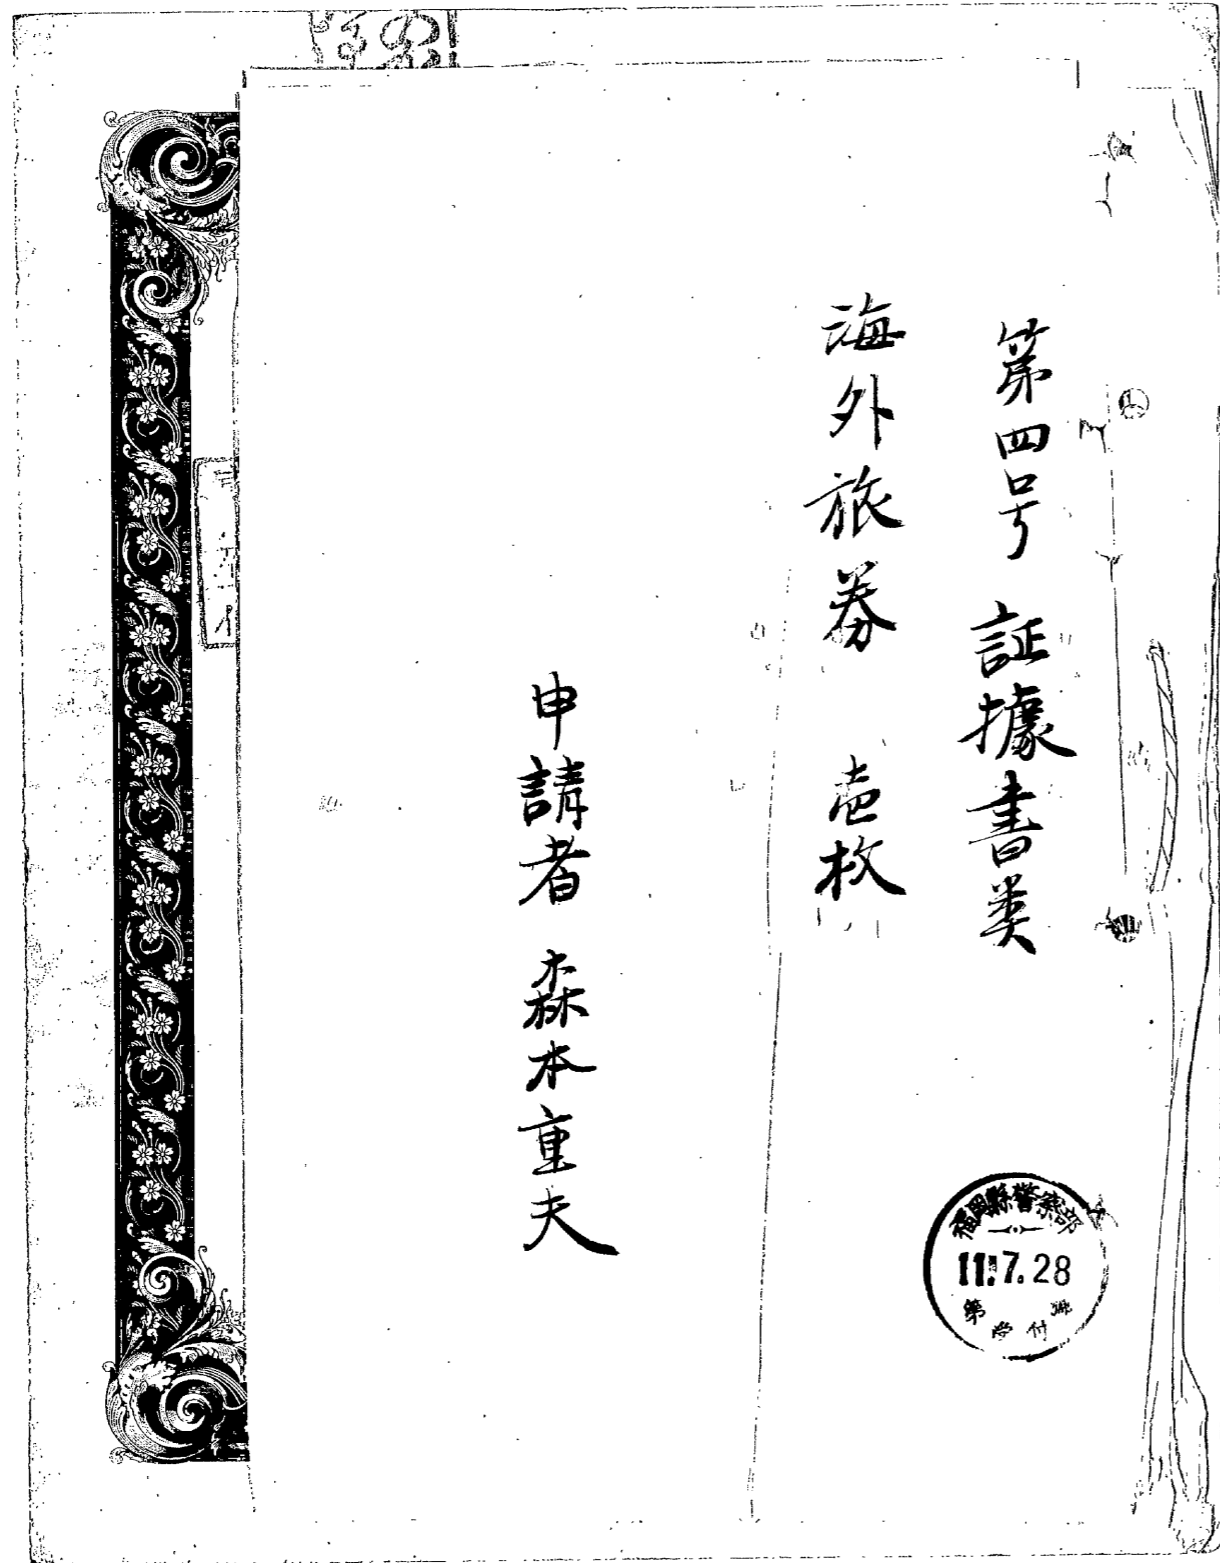 第四号 証據書类
海外旅券 壱枚
申請者 森本重夫
福岡縣警察部
11.7.28
第 受付 號